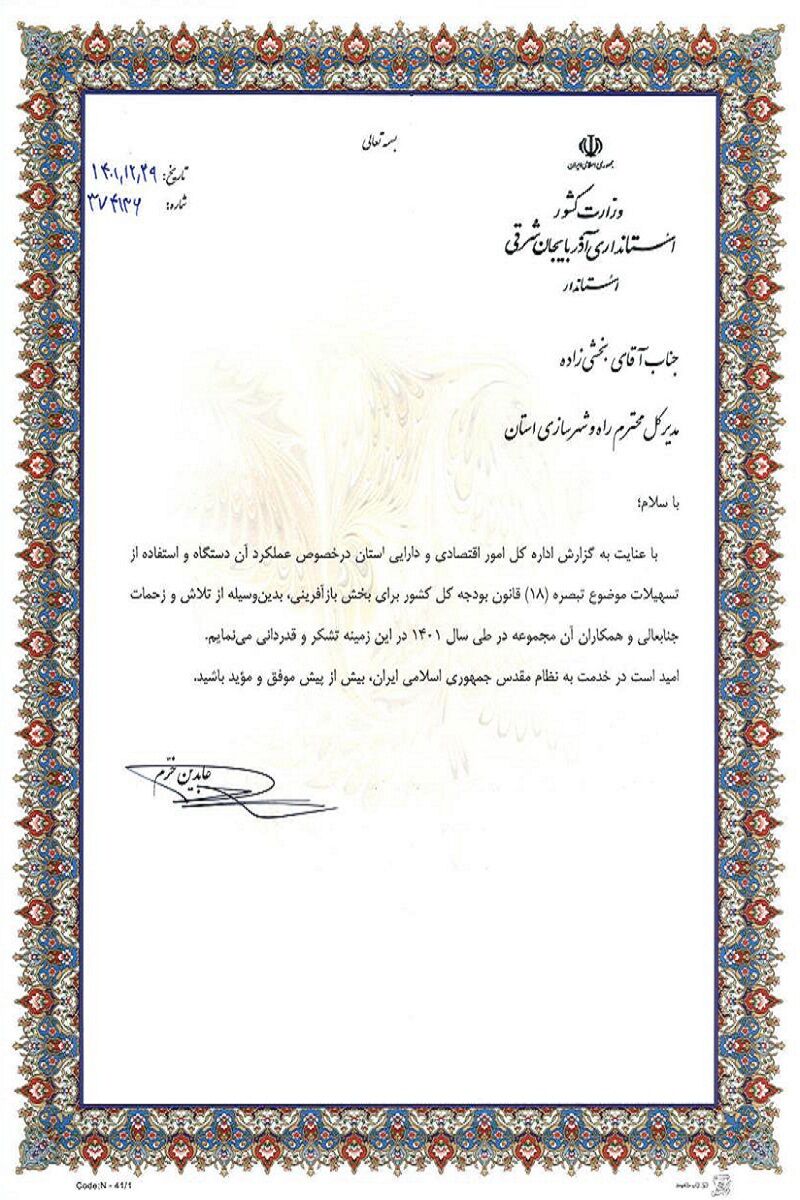 بسمه تعالی
جمهوری اسلامی ایران
وزارت کشور
استانداری آذربایجان شرقی
استاندار
تاریخ: ۱۴۰۱,۱۲,۲۹
شماره: ۳۷۴۱۳۶
جناب آقای بخشی زاده
مدیر کل محترم راه و شهرسازی استان
با سلام؛
با عنایت به گزارش اداره کل امور اقتصادی و دارایی استان درخصوص عملکرد آن دستگاه و استفاده از
تسهیلات موضوع تبصره (۱۸) قانون بودجه کل کشور برای بخش بازآفرینی، بدین‌وسیله از تلاش و زحمات
جنابعالی و همکاران آن مجموعه در طی سال ۱۴۰۱ در این زمینه تشکر و قدردانی می‌نمایم.
امید است در خدمت به نظام مقدس جمهوری اسلامی ایران، بیش از پیش موفق و مؤید باشید.
عابدین خرم
Code:N - 41/1